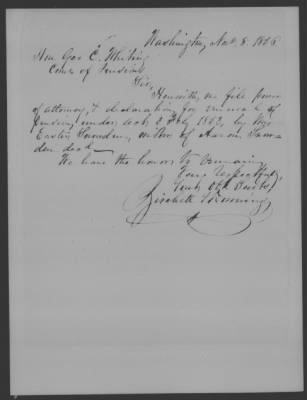 Washington, Nov. 8. 1856
Hon. Geo. C. Whiting
Comr of Pensions
Sir,
Herewith, we file power
of attorney, & declaration for renewal of
pension, under act 3 Feby 1853, by Mrs
widow of Aaron
den decd
We have the honor to remain
Yours respectfully,
Your obt. Servts,